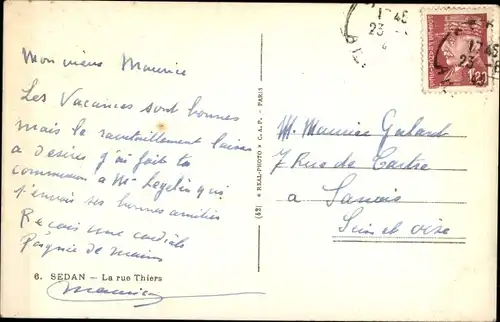 Mon vieux Maurice
Les Vacances sont bonnes
mais le ravitaillement laisse
a desirer j'ai fait ta
commission a Mr
t'envoi ses bonnes amitiés
Reçois une cordiale
Poignée de mains
6. SEDAN — La rue Thiers
Maurice
(42) « REAL-PHOTO » C.A.P. - PARIS
17 45
23
17 45
23
1f20
M. Maurice
7 Rue de
a Sannois
Seine et oise